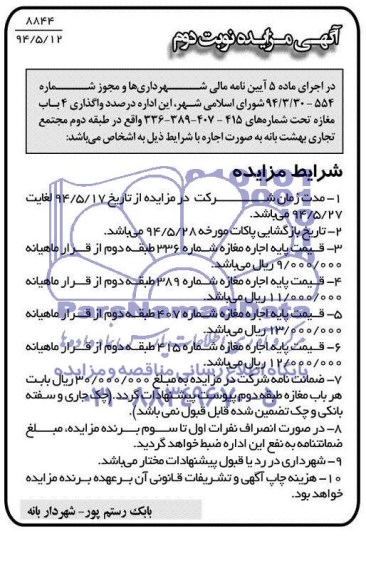 ۸۸۴۴
۹۴/۵/۱۲
آگهی مزایده نوبت دوم
در اجرای ماده ۵ آیین نامه مالی شهرداری‌ها و مجوز شماره
۵۵۴ - ۹۴/۳/۳۰ شورای اسلامی شهر، این اداره درصدد واگذاری ۴ باب
مغازه تحت شماره‌های ۴۱۵ - ۴۰۷ -۳۸۹-۳۳۶ واقع در طبقه دوم مجتمع
تجاری بهشت بانه به صورت اجاره با شرایط ذیل به اشخاص می‌باشد:
شرایط مزایده
۱- مدت زمان شرکت در مزایده از تاریخ ۹۴/۵/۱۷ لغایت
۹۴/۵/۲۷ می‌باشد.
۲- تاریخ بازگشایی پاکات مورخه ۹۴/۵/۲۸ می‌باشد.
۳- قیمت پایه اجاره مغازه شماره ۳۳۶ طبقه دوم از قرار ماهیانه
۹/۰۰۰/۰۰۰ ریال می‌باشد.
۴- قیمت پایه اجاره مغازه شماره ۳۸۹ طبقه دوم از قرار ماهیانه
۱۱/۰۰۰/۰۰۰ ریال می‌باشد.
۵- قیمت پایه اجاره مغازه شماره ۴۰۷ طبقه دوم از قرار ماهیانه
۱۳/۰۰۰/۰۰۰ ریال می‌باشد.
۶- قیمت پایه اجاره مغازه شماره ۴۱۵ طبقه دوم از قرار ماهیانه
۱۲/۰۰۰/۰۰۰ ریال می‌باشد.
پایگاه اطلاع رسانی مناقصه و مزایده
۷- ضمانت نامه شرکت در مزایده به مبلغ ۳۰/۰۰۰/۰۰۰ ریال بابت
هر باب مغازه طبقه دوم پیوست پیشنهادات گردد. (چک جاری و سفته
بانکی و چک تضمین شده قابل قبول نمی باشد).
۸- در صورت انصراف نفرات اول تا سوم برنده مزایده، مبلغ
ضمانتنامه به نفع این اداره ضبط خواهد گردید.
۹- شهرداری در رد یا قبول پیشنهادات مختار می‌باشد.
۱۰- هزینه چاپ آگهی و تشریفات قانونی آن برعهده برنده مزایده
خواهد بود.
بابک رستم پور- شهردار بانه